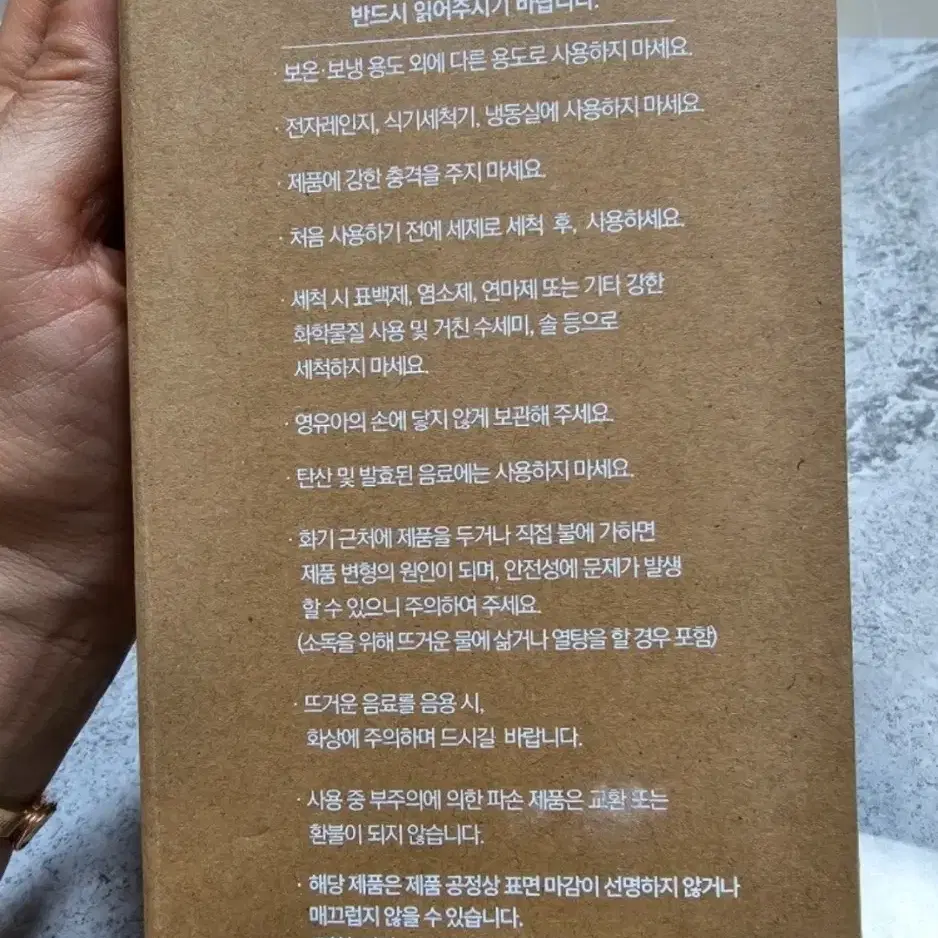 반드시 읽어주시기 바랍니다.
· 보온·보냉 용도 외에 다른 용도로 사용하지 마세요.
· 전자레인지, 식기세척기, 냉동실에 사용하지 마세요.
· 제품에 강한 충격을 주지 마세요.
· 처음 사용하기 전에 세제로 세척 후, 사용하세요.
· 세척 시 표백제, 염소제, 연마제 또는 기타 강한
화학물질 사용 및 거친 수세미, 솔 등으로
세척하지 마세요.
· 영유아의 손에 닿지 않게 보관해 주세요.
· 탄산 및 발효된 음료에는 사용하지 마세요.
· 화기 근처에 제품을 두거나 직접 불에 가하면
제품 변형의 원인이 되며, 안전성에 문제가 발생
할 수 있으니 주의하여 주세요.
(소독을 위해 뜨거운 물에 삶거나 열탕을 할 경우 포함)
· 뜨거운 음료를 음용 시,
화상에 주의하며 드시길 바랍니다.
· 사용 중 부주의에 의한 파손 제품은 교환 또는
환불이 되지 않습니다.
· 해당 제품은 제품 공정상 표면 마감이 선명하지 않거나
매끄럽지 않을 수 있습니다.